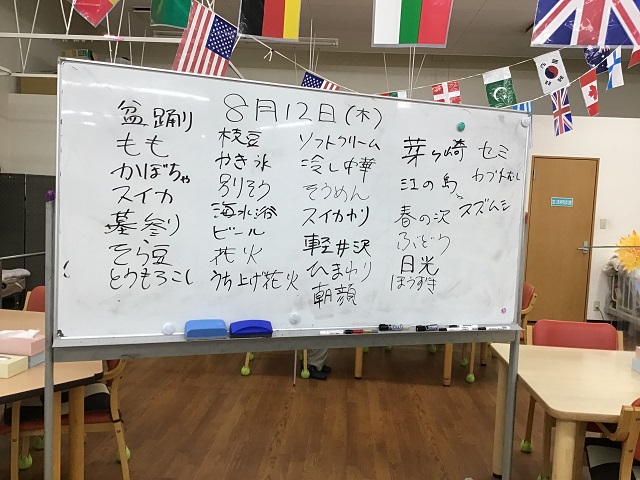 8月12日(木)
盆踊り
もも
かぼちゃ
スイカ
墓参り
そら豆
とうもろこし
枝豆
かき氷
海水浴
ビール
花火
うち上げ花火
ソフトクリーム
冷し中華
そうめん
スイカわり
軽井沢
ひまわり
朝顔
茅ヶ崎
江の島
春の沢
ぶどう
日光
ほうずき
セミ
カブトムシ
スズムシ